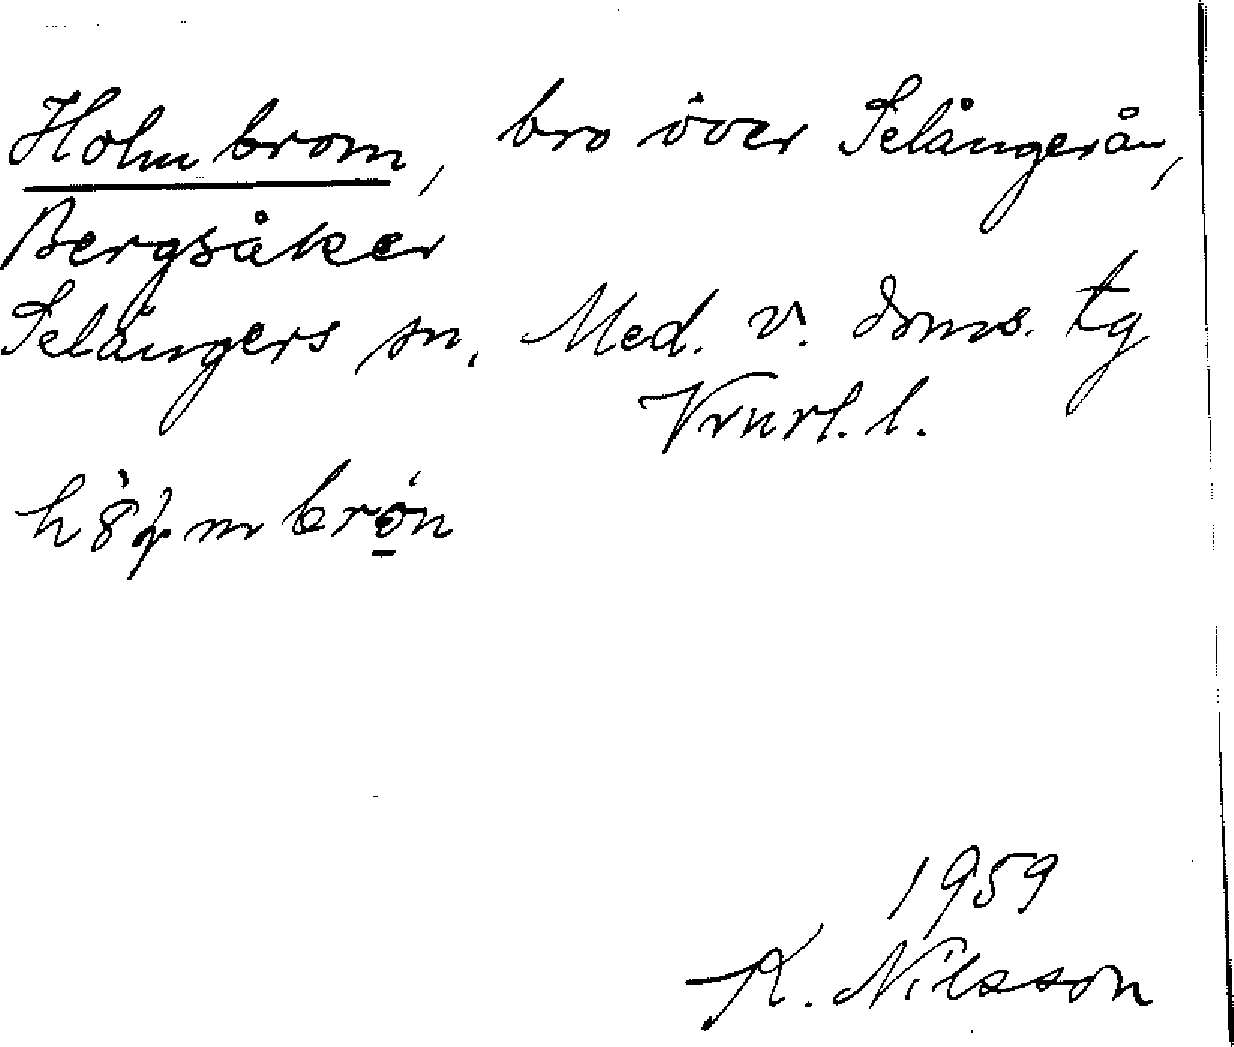 Holmbrom, bro över Selångerån,
Bergsåker
Selångers sn. Med. v. doms. tg
Vrnrl. l.
1959
K. Nilsson